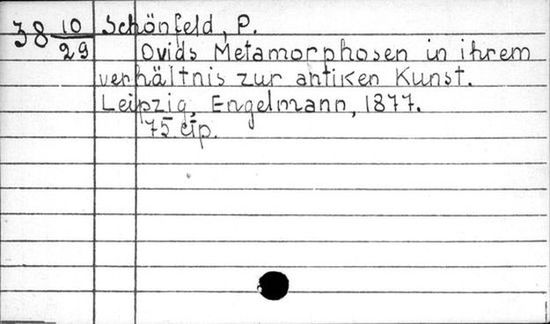 38 10/29 Schönfeld, P.
Ovids Metamorphosen in ihrem
verhältnis zur antiken Kunst.
Leipzig, Engelmann, 1877.
75 стр.